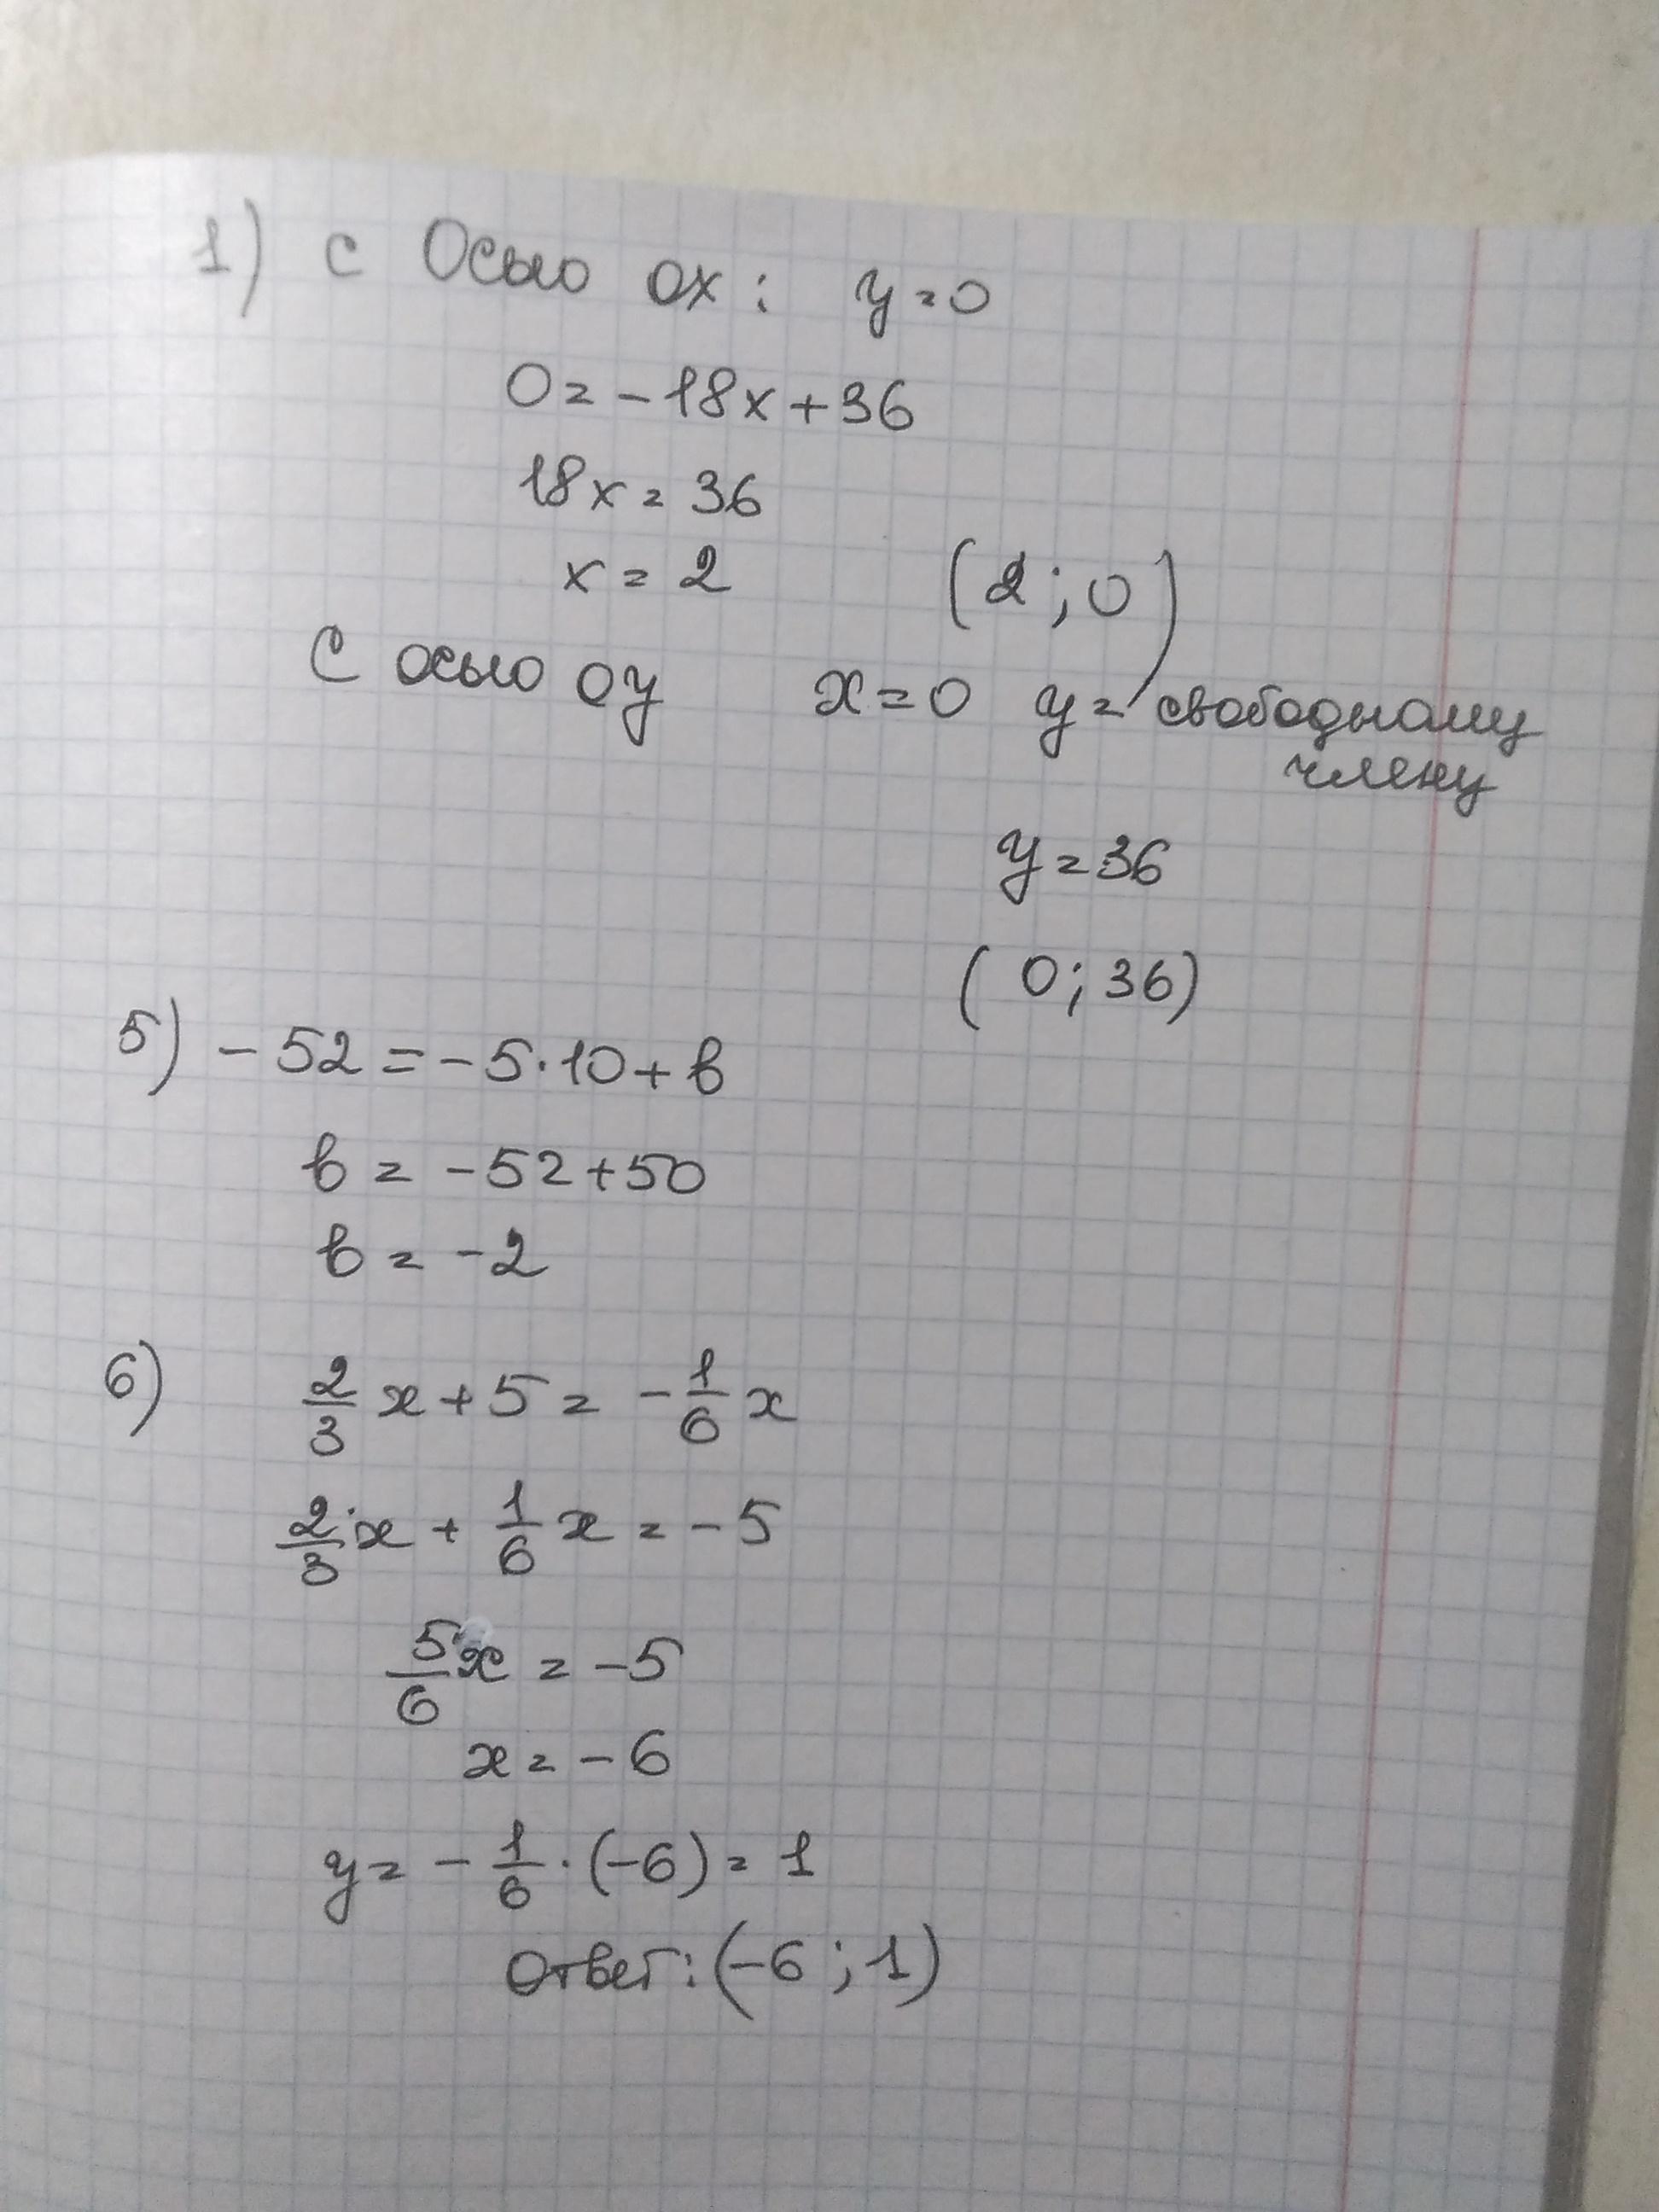 1) с Осью ох: у=0
0=-18х+36
18х=36
х=2 (2;0)
С осью оу х=0 у= свободному
члену
у=36
(0;36)
5) -52=-5·10+в
в=-52+50
в=-2
6) 2/3 х+5=-1/6 х
2/3 х+1/6 х=-5
5/6 х=-5
х=-6
у=-1/6·(-6)=1
Ответ:(-6;1)